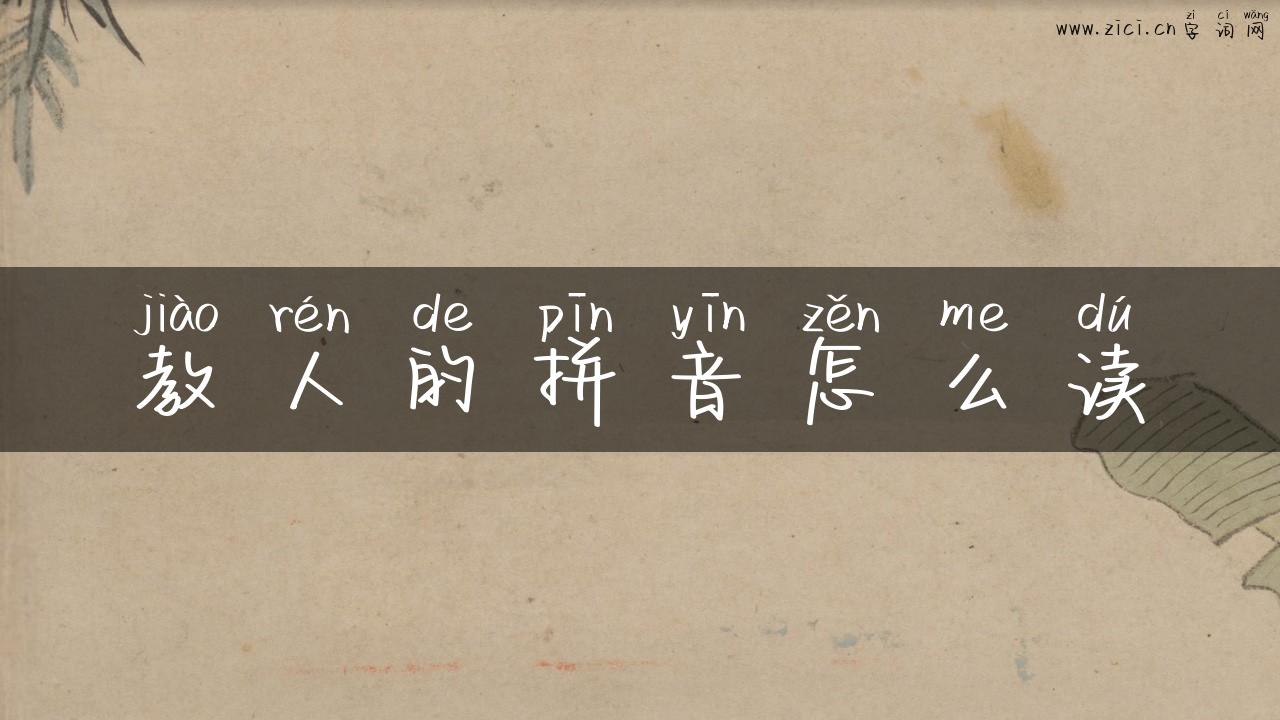 zì cí wǎng
www.zici.cn 字词网
jiào rén de pīn yīn zěn me dú
教人的拼音怎么读